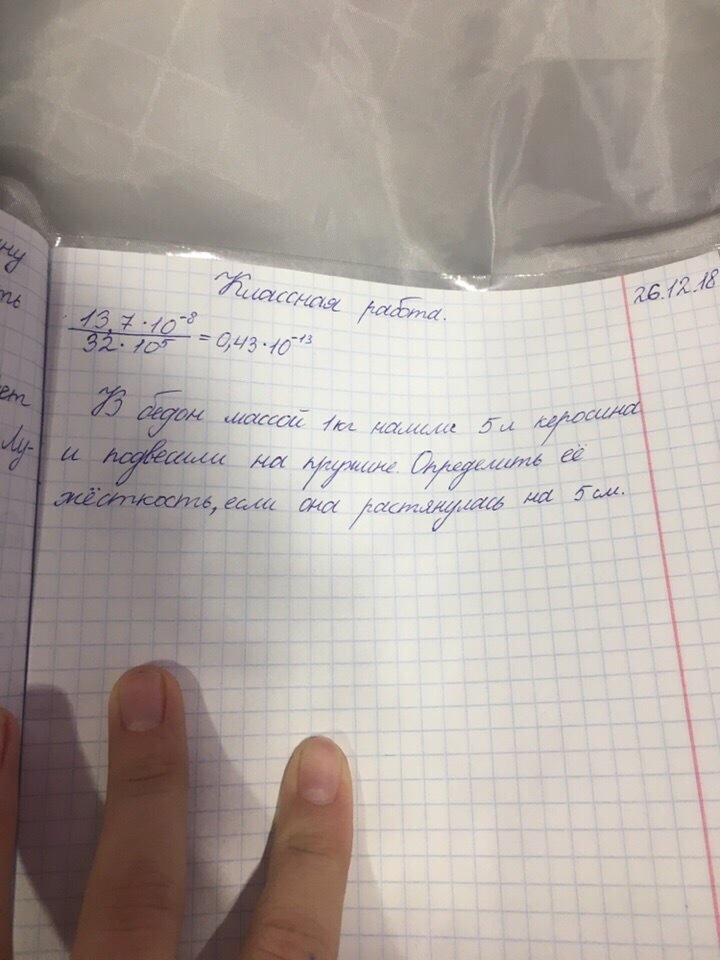 ну
ть
ет
Лу-
Классная работа.
26.12.18
13,7·10⁻⁸
32·10⁵
= 0,43·10⁻¹³
В бедон массой 1кг налили 5л керосина
и подвесили на пружине. Определить её
жёсткость, если она растянулась на 5см.